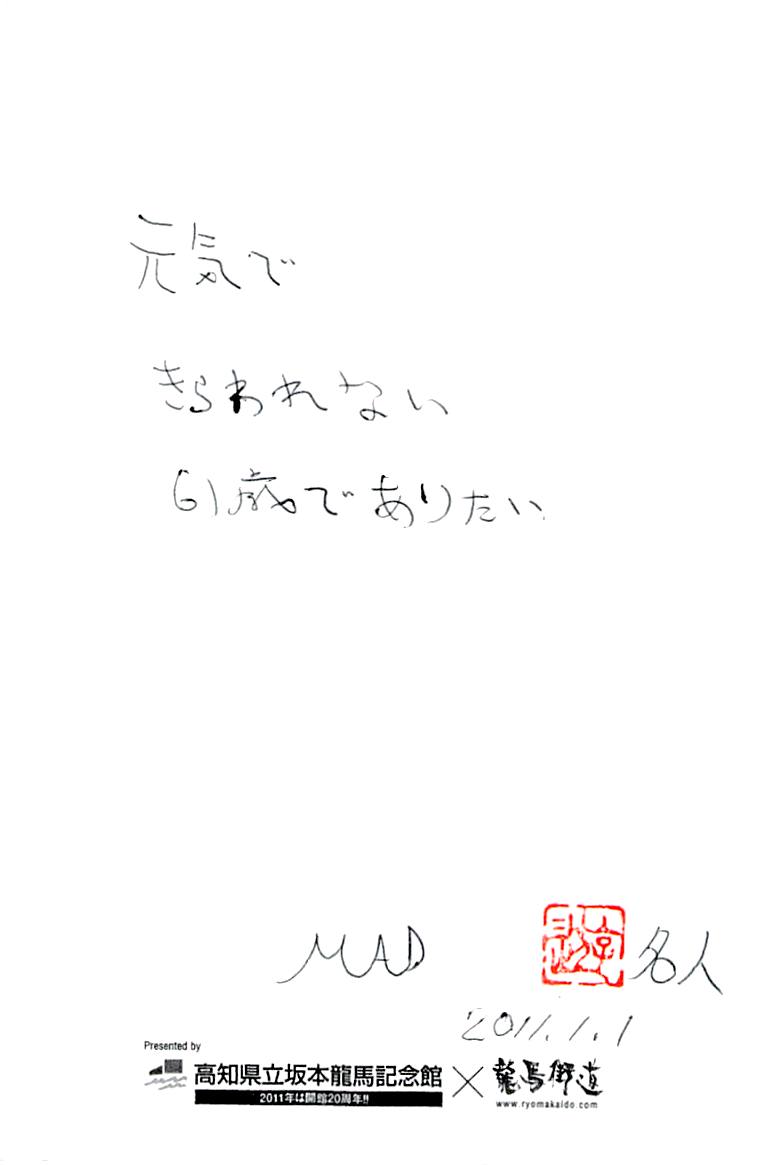 元気で
きらわれない
61歳でありたい
MAD
名人
2011.1.1
Presented by
高知県立坂本龍馬記念館 × 龍馬街道
2011年は開館20周年!!
www.ryomakaido.com